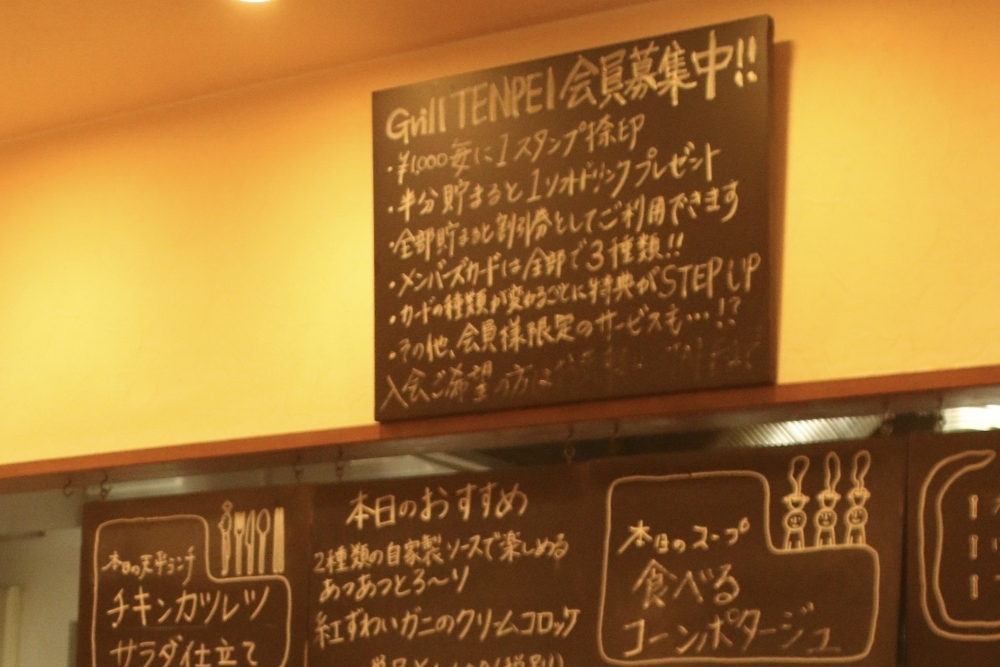 Grill TENPEI 会員募集中!!
・¥1,000毎に1スタンプ捺印
・半分貯まると1ソフトドリンクプレゼント
・全部貯まると割引券としてご利用できます
・メンバーズカードは全部で3種類!!
・カードの種類が変わるごとに特典がSTEP UP
・その他、会員様限定のサービスも…!?
入会ご希望の方は
本日の天平ランチ
チキンカツレツ
サラダ仕立て
本日のおすすめ
2種類の自家製ソースで楽しめる
あつあつとろ〜り
紅ずわいガニのクリームコロッケ
本日のスープ
食べる
コーンポタージュ